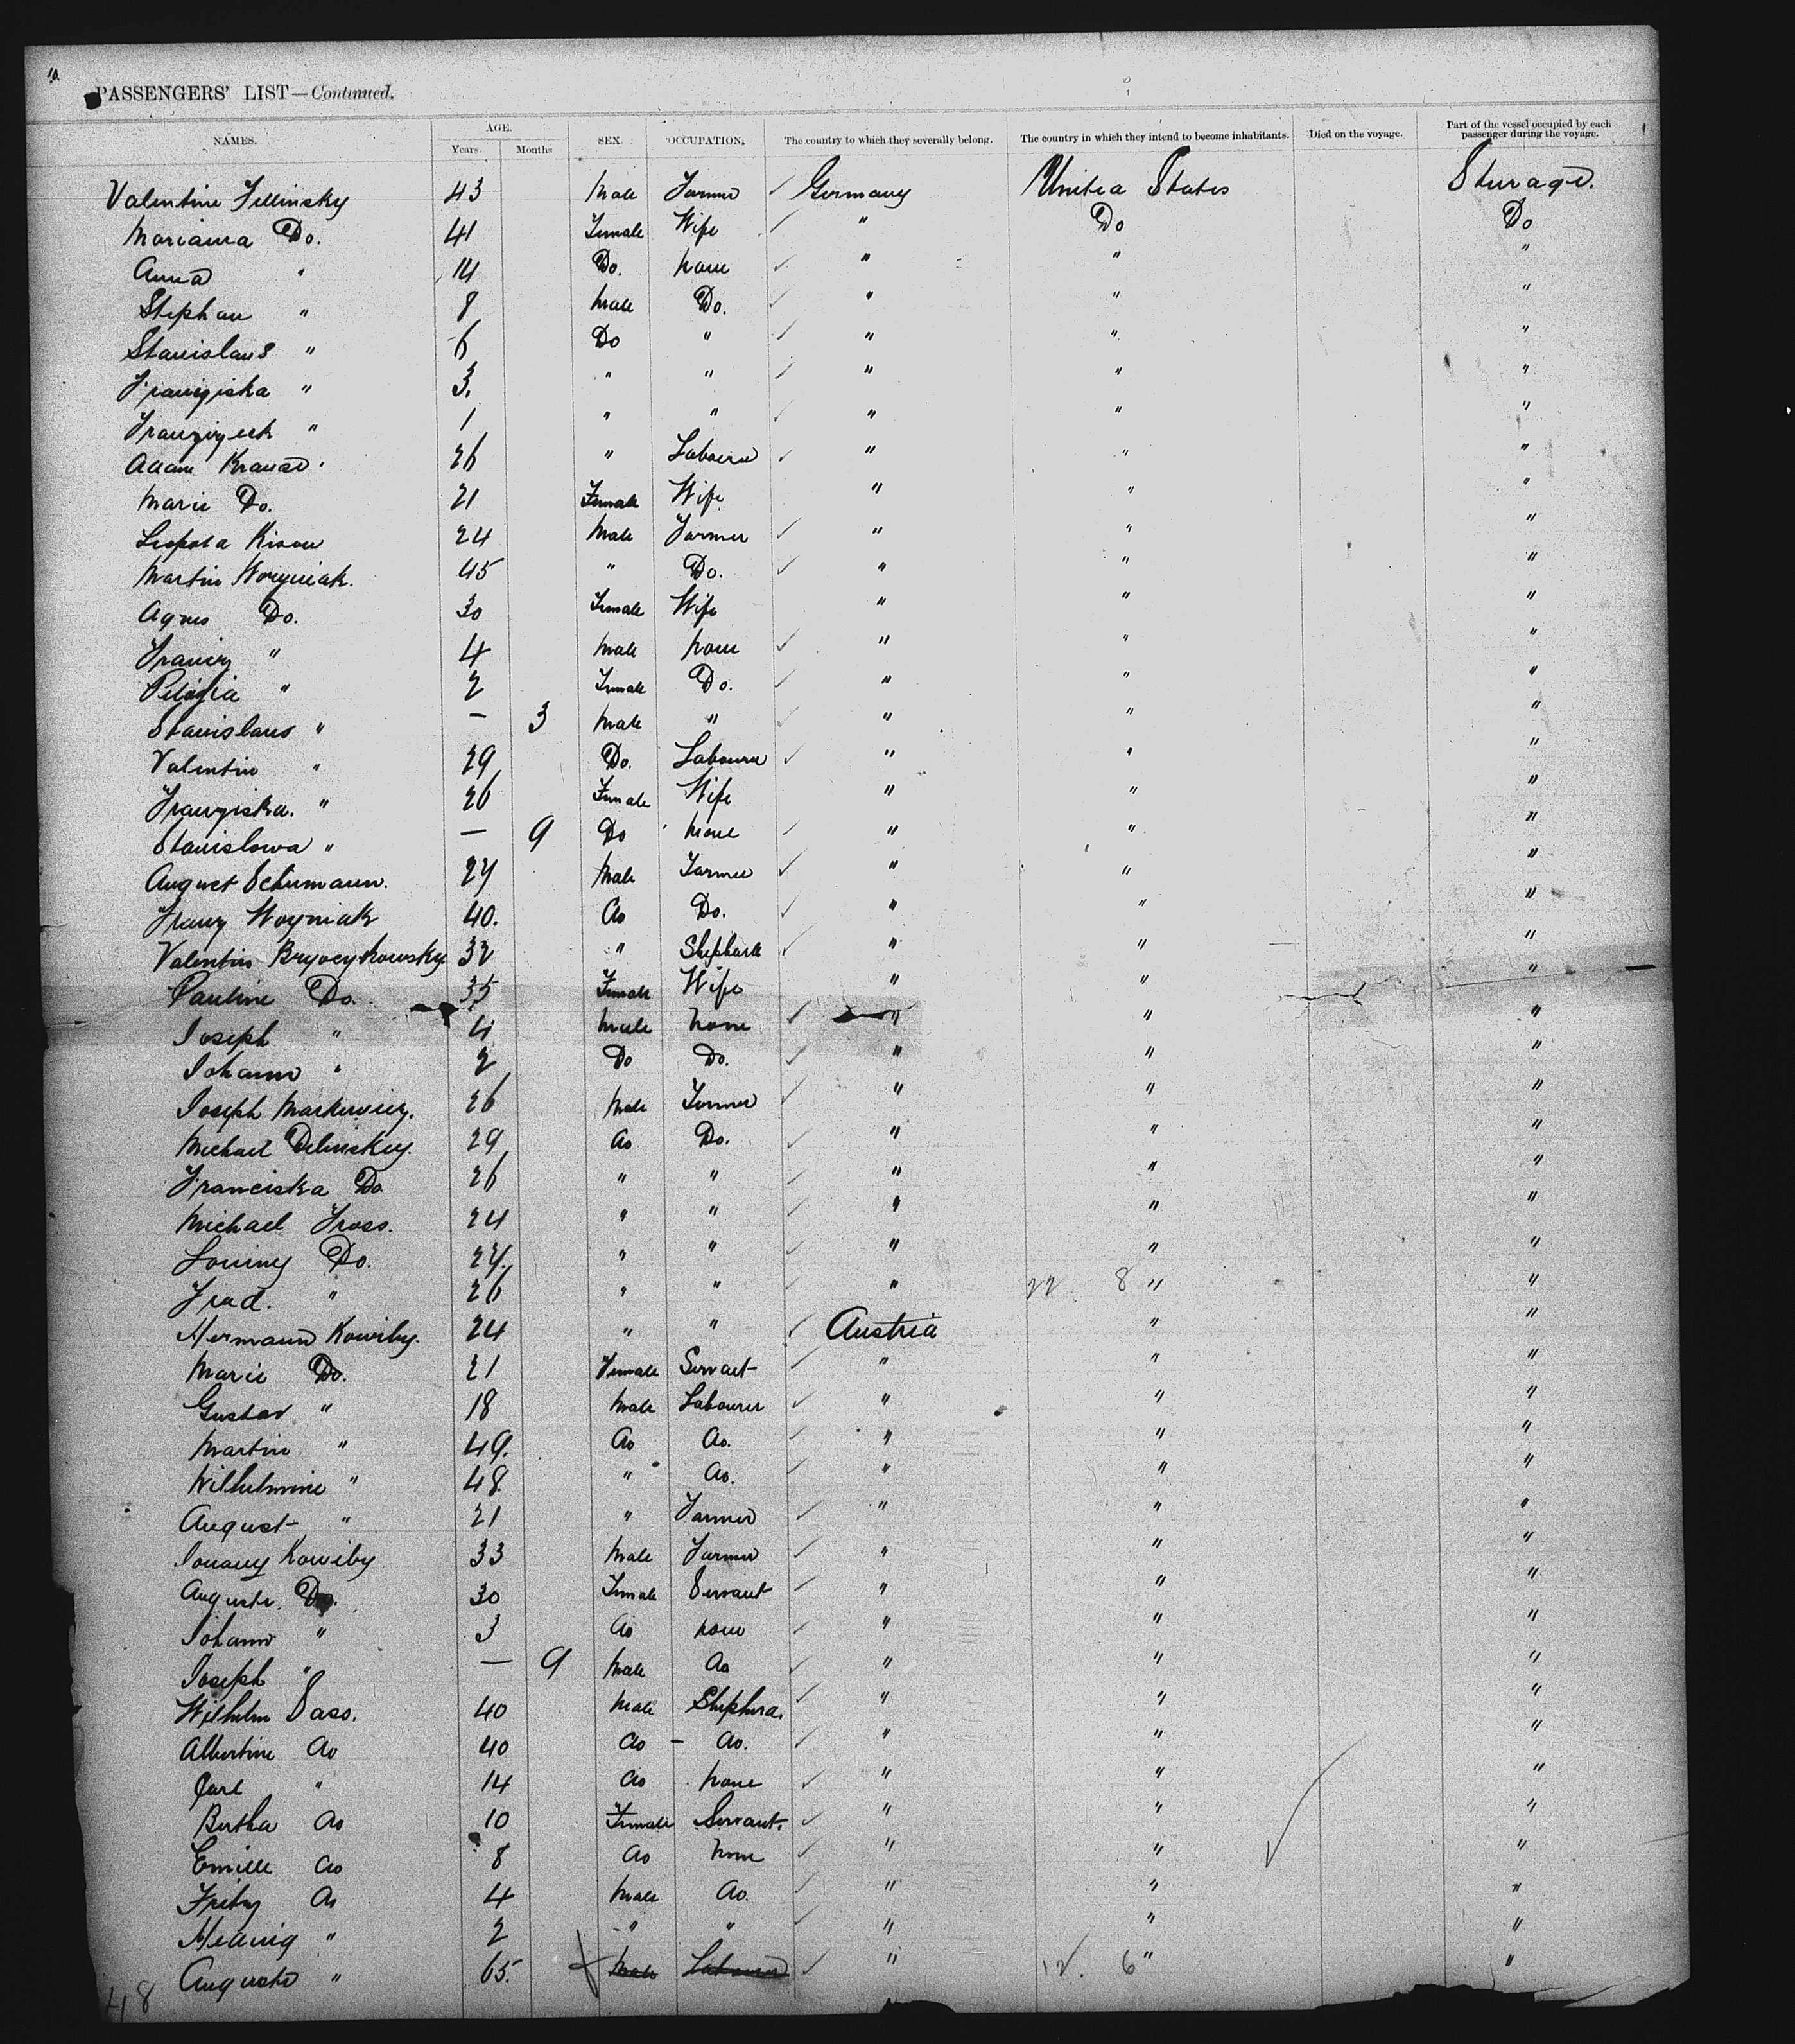 10.
PASSENGERS' LIST—Continued.
NAMES. AGE. Years. Months SEX. OCCUPATION. The country to which they severally belong. The country in which they intend to become inhabitants. Died on the voyage. Part of the vessel occupied by each passenger during the voyage.
Valentine 43 Male Farmer ✓ Germany United States Sturage.
Marianna Do. 41 Female Wife ✓ " Do Do
Anna " 14 Do. none ✓ " " "
Stephan " 8 Male Do. ✓ " " "
Stanislaus " 6 Do " ✓ " " "
Franziska " 3. " " ✓ " " "
" 1 " " ✓ " " "
Adam Krause 26 " Labourer ✓ " " "
Marie Do. 21 Female Wife " " "
Leopold 24 Male Farmer ✓ " " "
Martin Woyniak. 45 " Do. ✓ " " "
Agnes Do. 30 Female Wife " " "
" 4 Male none ✓ " " "
Pelagia " 2 Female Do. ✓ " " "
Stanislaus " — 3 Male " ✓ " " "
Valentin " 29 Do. Labourer ✓ " " "
Franziska. " 26 Female Wife " " "
Stanislowa " — 9 Do none ✓ " " "
August Schumann. 27 Male Farmer ✓ " " "
Franz Woyniak 40. do Do. ✓ " " "
Valentin 32 " Shepherd ✓ " " "
Pauline Do. 35 Female Wife " " "
Joseph " 4 Male None ✓ " " "
Johann " 2 Do Do. ✓ " " "
Joseph Markewicz. 26 Male Farmer ✓ " " "
Michael Delinskey. 29 do Do. ✓ " " "
Franciska Do 26 " " ✓ " " "
Michael Fross. 24 " " ✓ " " "
Do. 27. " " ✓ " " "
Fred. " 26 " " ✓ " 22 8 " "
Hermann Kowiby. 24 " " ✓ Austria " "
Marie Do. 21 Female Servant ✓ " " "
Gustav " 18 Male Labourer ✓ " " "
Martin " 49. do do. ✓ " " "
Wilhelmine " 48. " do. ✓ " " "
August " 21 " Farmer ✓ " " "
Kowiby 33 Male Farmer ✓ " " "
Auguste. Do. 30 Female Servant ✓ " " "
Johann " 3 do none ✓ " " "
Joseph " — 9 Male do ✓ " " "
Wilhelm Sass. 40 Male Shepherd. ✓ " " "
Albertine do 40 do – do. ✓ " " "
Carl " 14 do none ✓ " " "
Bertha do 10 Female Servant. ✓ " " "
Emilie do 8 do None ✓ " " "
Fritz do 4 Male do. ✓ " " "
Hedwig " 2 " " ✓ " " "
Auguste " 65. Male Labourer ✓ " 12. 6 " "
48